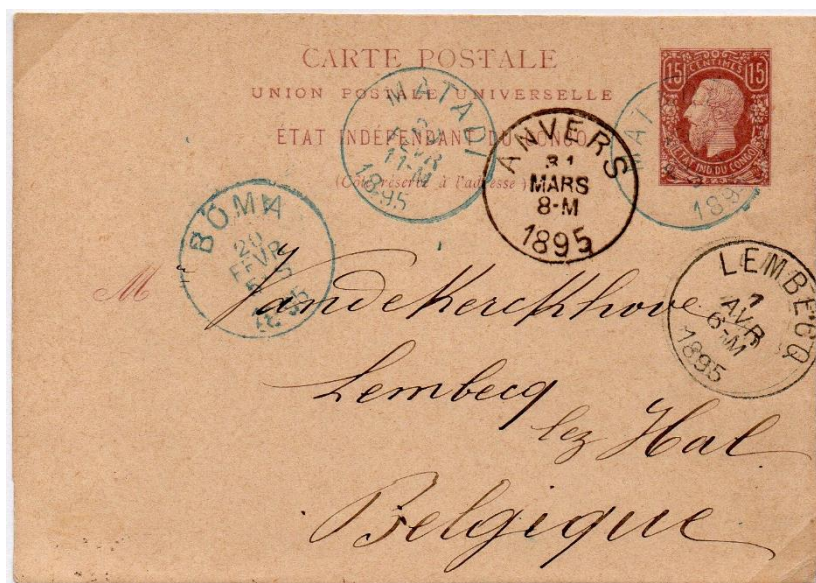 CARTE POSTALE
UNION POSTALE UNIVERSELLE
ÉTAT INDÉPENDANT DU CONGO
(Côté réservé à l'adresse)
15 CENTIMES 15
ÉTAT IND. DU CONGO
MATADI
FEVR
11-M
1895
MAT
189
ANVERS
31
MARS
8-M
1895
BOMA
20
FEVR
LEMBECQ
1
AVR
6-M
1895
M
r
Vandekerckhove
Lembecq
lez Hal
Belgique